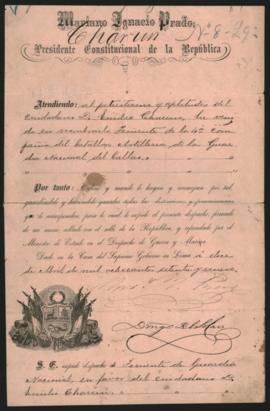 Mariano Ignacio Prado,
Charún
Nº 8-29
Presidente Constitucional de la República
Atendiendo: al patriotismo y aptitudes del
ciudadano D. Emilio Charún, he ven
do en nombrarlo Teniente de la 4ª com
pañía del batallón Artillería de la Guar
dia Nacional del Callao.
Por tanto: Ordeno y mando le hayan y reconozcan por tal,
guardándole y haciéndole guardar todas las distinciones y preeminencias
que le corresponden, para lo cual le expido el presente despacho, firmado
de mi mano, sellado con el sello de la República, y refrendado por el
Ministro de Estado en el Despacho de Guerra y Marina
Dado en la Casa del Supremo Gobierno en Lima á doce
de Abril de mil ochocientos setenta y nueve.
S. E. expide despacho de Teniente de Guardia
Nacional, en favor del ciudadano D.
Emilio Charún